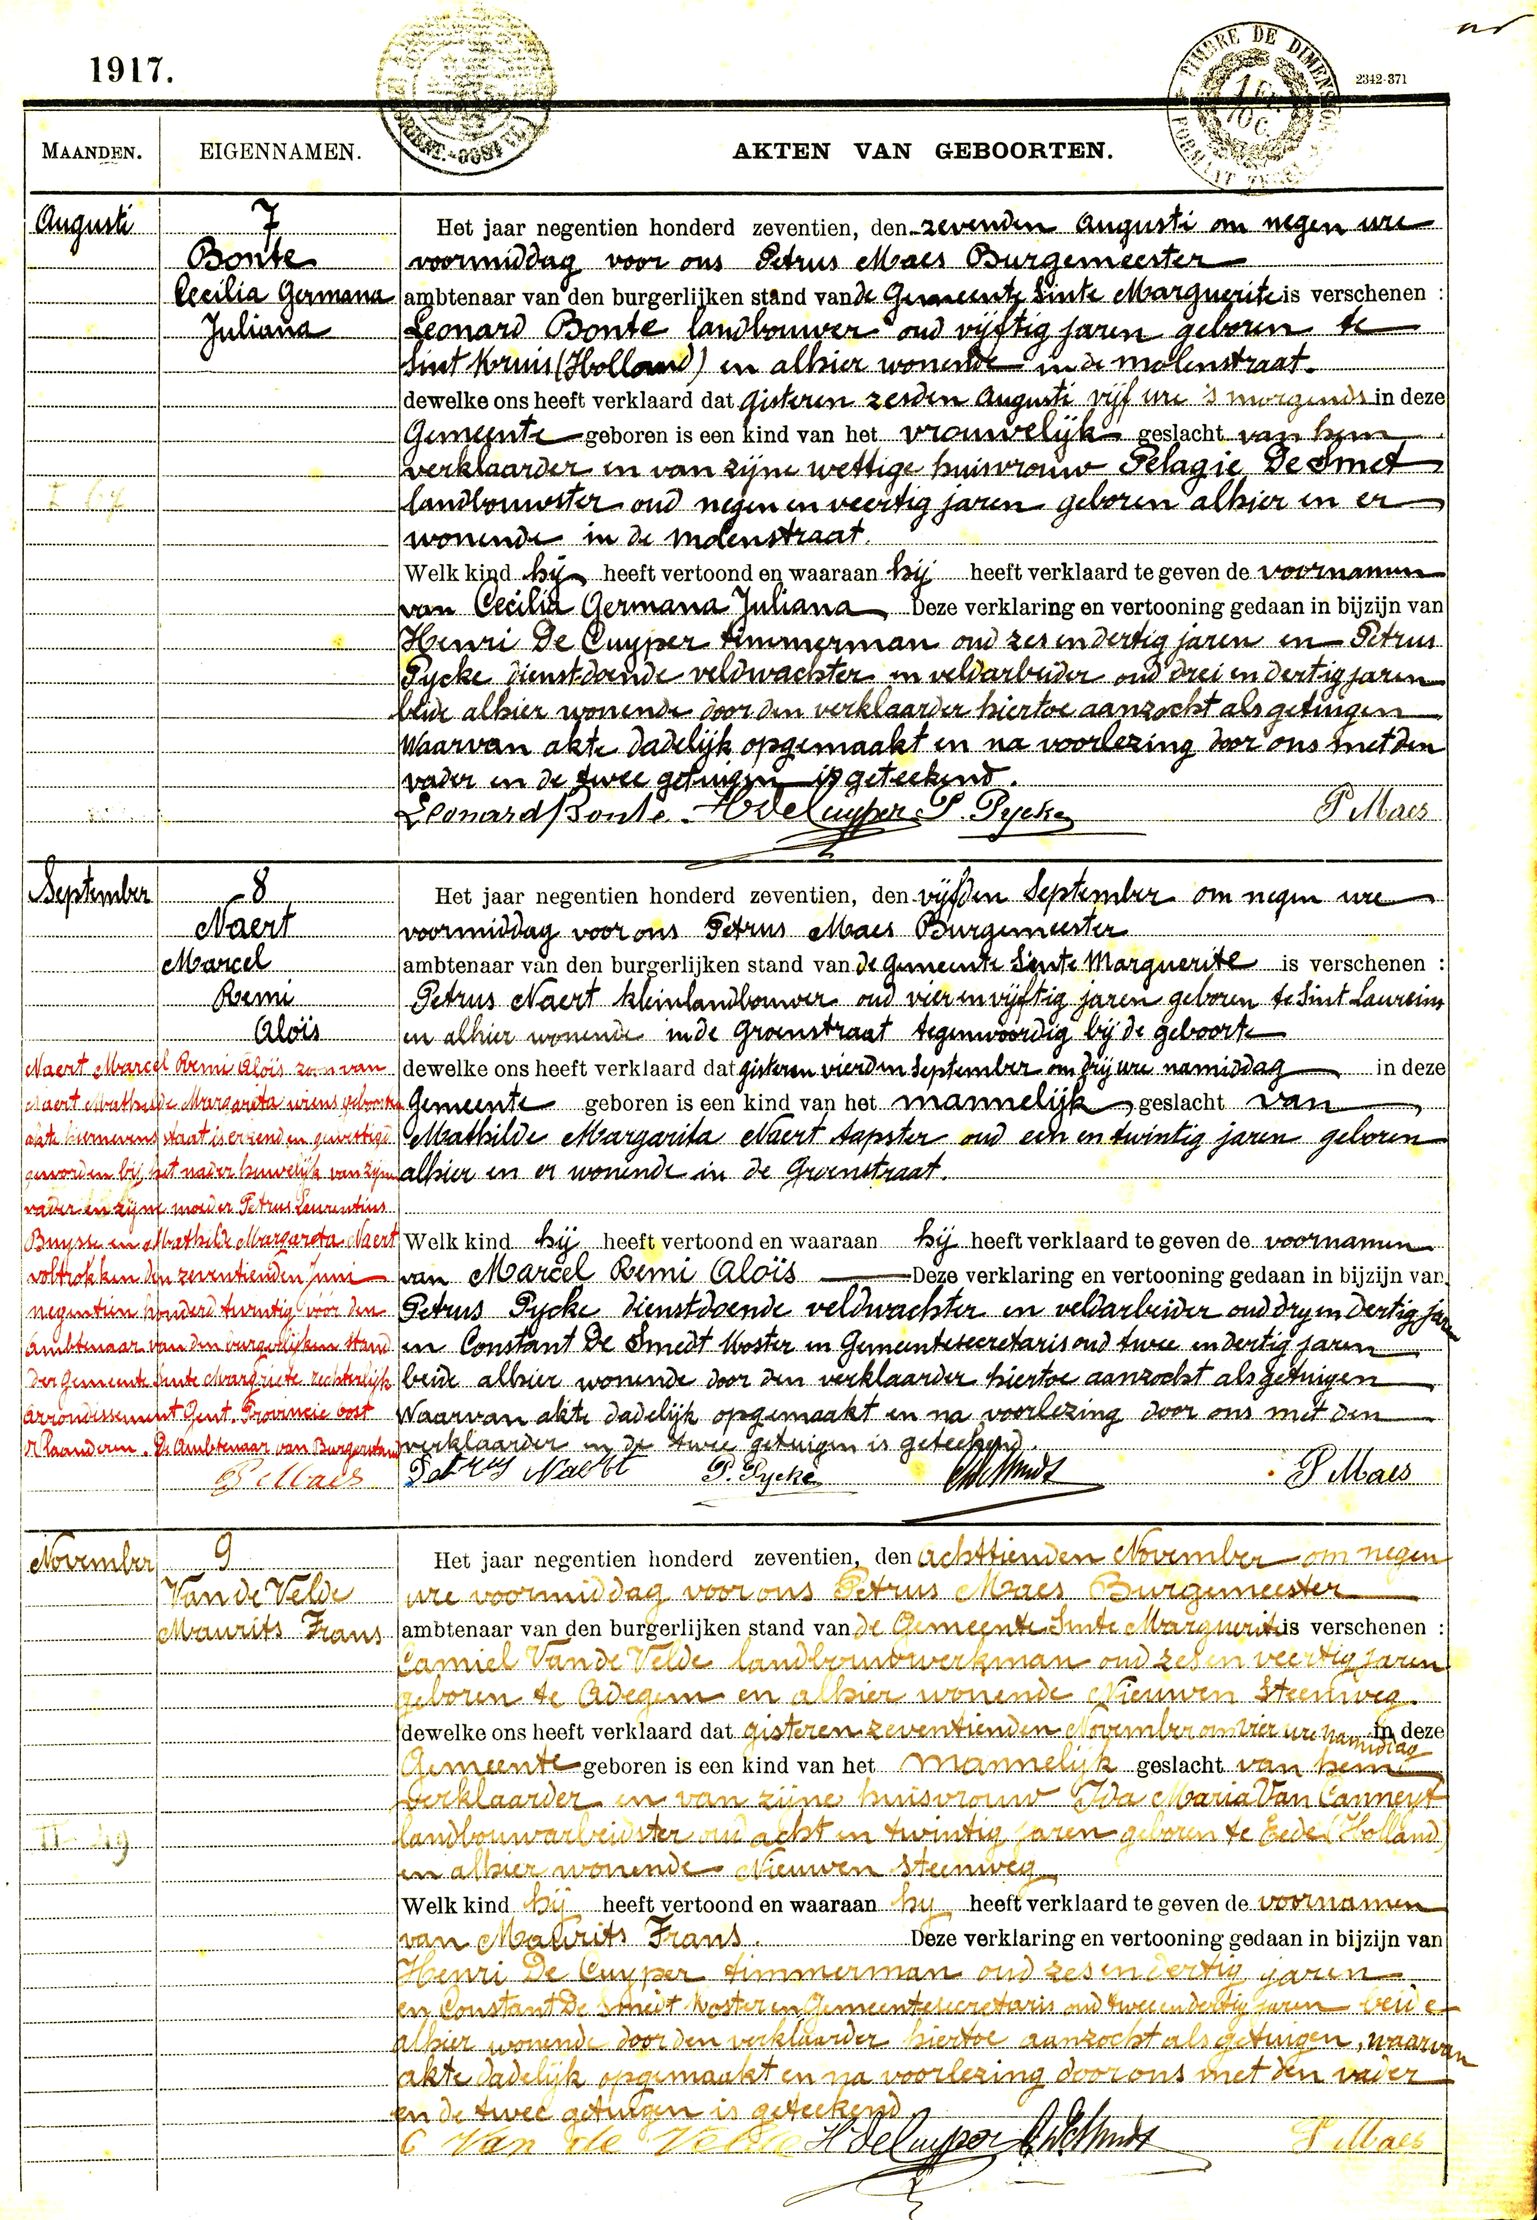 1917.
TIMBRE DE DIMENSION
1 Fr. 10 C.
2342-371
MAANDEN.
EIGENNAMEN.
AKTEN VAN GEBOORTEN.
Augusti
7
Bonte
Cecilia Germana
Juliana
Het jaar negentien honderd zeventien, den zevenden Augusti om negen ure
voormiddag voor ons Petrus Maes Burgemeester
ambtenaar van den burgerlijken stand van de Gemeente Sinte Marguerite is verschenen :
Leonard Bonte landbouwer oud vijftig jaren geboren te
Sint Kruis (Holland) en alhier wonende in de molenstraat.
dewelke ons heeft verklaard dat gisteren zesden Augusti vijf ure 's morgends in deze
Gemeente geboren is een kind van het vrouwelijk geslacht van hem
verklaarder en van zijne wettige huisvrouw Pelagie De Smet
landbouwster oud negen en veertig jaren geboren alhier en er
wonende in de molenstraat.
Welk kind hij heeft vertoond en waaraan hij heeft verklaard te geven de voornamen
van Cecilia Germana Juliana Deze verklaring en vertooning gedaan in bijzijn van
Henri De Cuyper timmerman oud zes en dertig jaren en Petrus
Pycke dienstdoende veldwachter en veldarbeider oud drei en dertig jaren
beide alhier wonende door den verklaarder hiertoe aanzocht als getuigen
Waarvan akte dadelijk opgemaakt en na voorlezing door ons met den
vader en de twee getuigen is geteekend.
Leonard Bonte H de Cuyper P. Pycke P Maes
September
8
Naert
Marcel
Remi
Aloïs
Het jaar negentien honderd zeventien, den vijfden September om negen ure
voormiddag voor ons Petrus Maes Burgemeester
ambtenaar van den burgerlijken stand van de Gemeente Sinte Marguerite is verschenen :
Petrus Naert kleinlandbouwer oud vier en vijftig jaren geboren te Sint Laureins
en alhier wonende in de Groenstraat tegenwoordig bij de geboorte
dewelke ons heeft verklaard dat gisteren vierden September om drij ure namiddag in deze
Gemeente geboren is een kind van het mannelijk geslacht van
Mathilde Margarita Naert tapster oud een en twintig jaren geboren
alhier en er wonende in de Groenstraat.
Welk kind hij heeft vertoond en waaraan hij heeft verklaard te geven de voornamen
van Marcel Remi Aloïs Deze verklaring en vertooning gedaan in bijzijn van
Petrus Pycke dienstdoende veldwachter en veldarbeider oud dry en dertig jaren
en Constant De Smedt Koster en Gemeentesecretaris oud twee en dertig jaren
beide alhier wonende door den verklaarder hiertoe aanzocht als getuigen
Waarvan akte dadelijk opgemaakt en na voorlezing door ons met den
verklaarder en de twee getuigen is geteekend.
Petrus Naert P. Pycke C De Smedt P Maes
Naert Marcel Remi Aloïs zoon van
Naert Mathilde Margarita wiens geboorte
akte hiernevens staat is erkend en gewettigd
geworden bij het nader huwelijk van zijn
vader en zijne moeder Petrus Laurentius
Buysse en Mathilde Margareta Naert
voltrokken den zeventienden Juni
negentien honderd twintig vóór den
Ambtenaar van den burgerlijken stand
der Gemeente Sinte Margriete rechterlijk
Arrondissement Gent. Provincie Oost
Vlaanderen. De Ambtenaar van Burgerstand
P Maes
November
9
Van de Velde
Maurits Frans
Het jaar negentien honderd zeventien, den achttienden November om negen
ure voormiddag voor ons Petrus Maes Burgemeester
ambtenaar van den burgerlijken stand van de Gemeente Sinte Marguerite is verschenen :
Camiel Van de Velde landbouwwerkman oud zes en veertig jaren
geboren te Adegem en alhier wonende Nieuwen Steenweg.
dewelke ons heeft verklaard dat gisteren zeventienden November om vier ure namiddag in deze
Gemeente geboren is een kind van het mannelijk geslacht van hem
verklaarder en van zijne huisvrouw Ida Maria Van Canneyt
landbouwarbeidster oud acht en twintig jaren geboren te Eede (Holland)
en alhier wonende Nieuwen Steenweg
Welk kind hij heeft vertoond en waaraan hy heeft verklaard te geven de voornamen
van Maurits Frans. Deze verklaring en vertooning gedaan in bijzijn van
Henri De Cuyper timmerman oud zes en dertig jaren
en Constant De Smedt Koster en Gemeentesecretaris oud twee en dertig jaren beide
alhier wonende door den verklaarder hiertoe aanzocht als getuigen, waarvan
akte dadelijk opgemaakt en na voorlezing door ons met den vader
en de twee getuigen is geteekend
C Van de Velde H de Cuyper C De Smedt P Maes